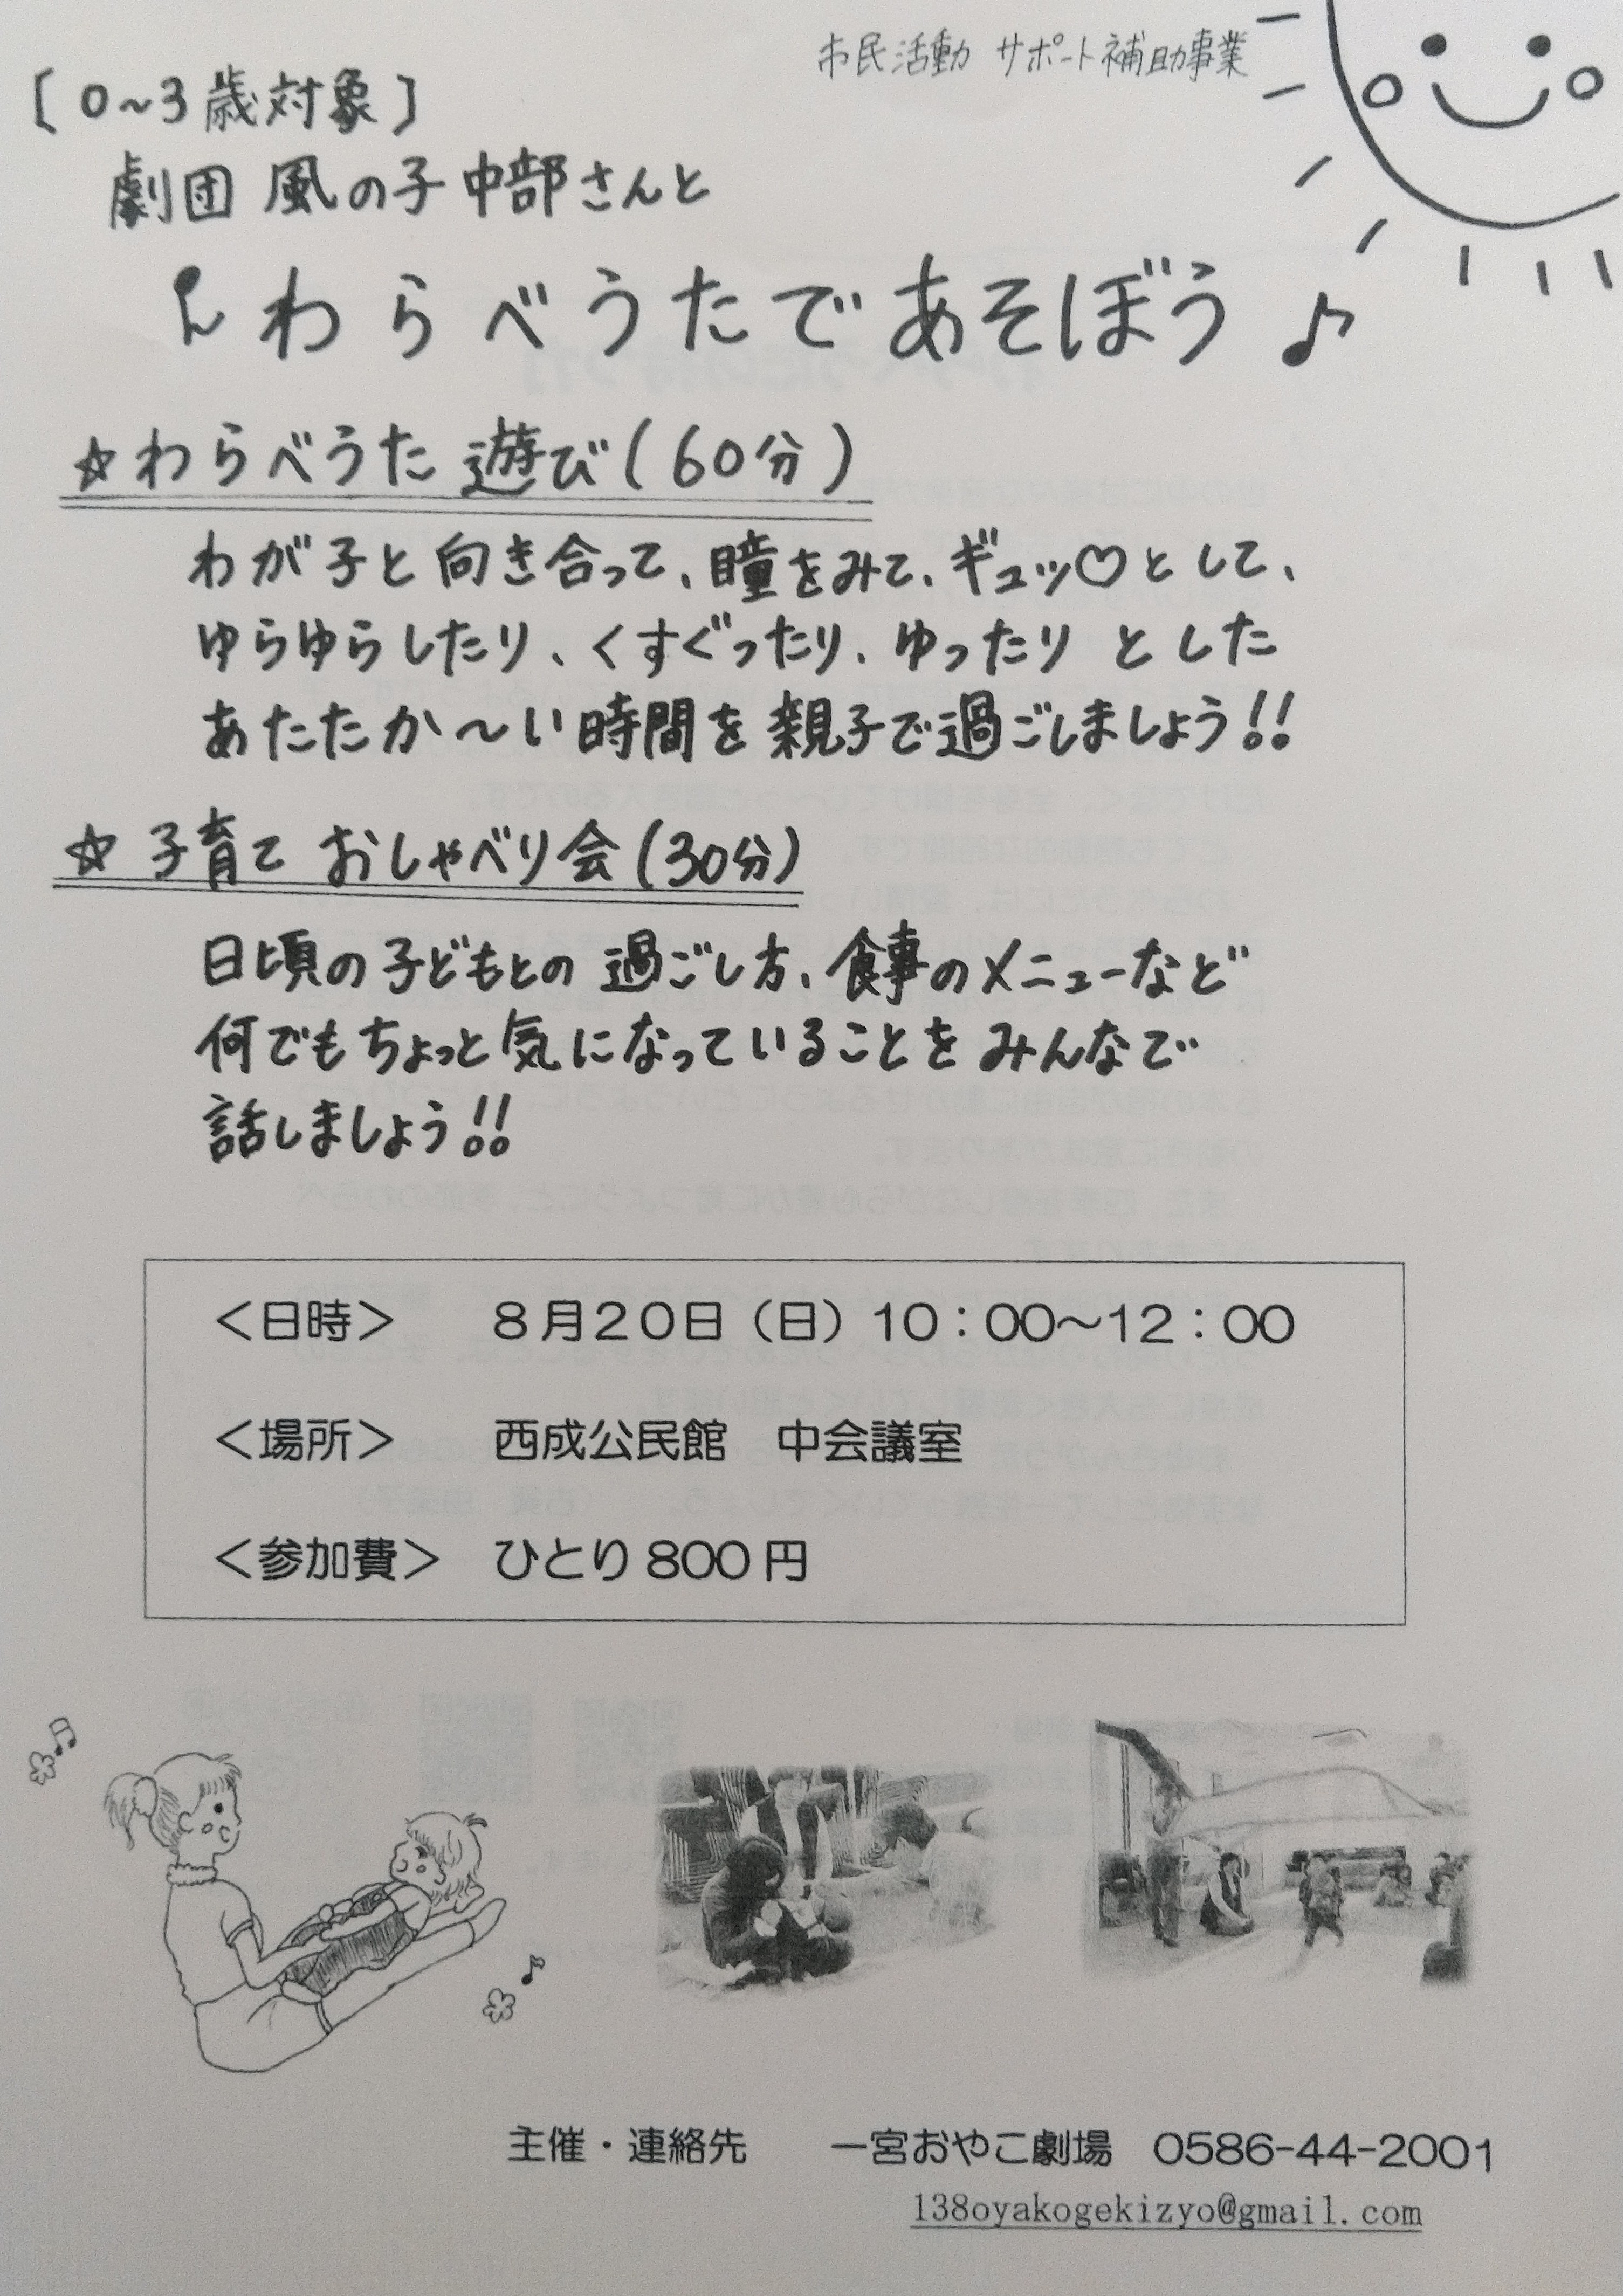 市民活動 サポート補助事業
[0~3歳対象]
劇団 風の子中部さんと
わらべうたであそぼう♪
☆わらべうた遊び(60分)
わが子と向き合って、瞳をみて、ギュッ♡として、
ゆらゆらしたり、くすぐったり、ゆったりとした
あたたか〜い時間を親子で過ごしましょう!!
☆子育ておしゃべり会(30分)
日頃の子どもとの過ごし方、食事のメニューなど
何でもちょっと気になっていることをみんなで
話しましょう!!
＜日時＞ 8月20日（日）10：00～12：00
＜場所＞ 西成公民館 中会議室
＜参加費＞ ひとり800円
主催・連絡先 一宮おやこ劇場 0586-44-2001
138oyakogekizyo@gmail.com